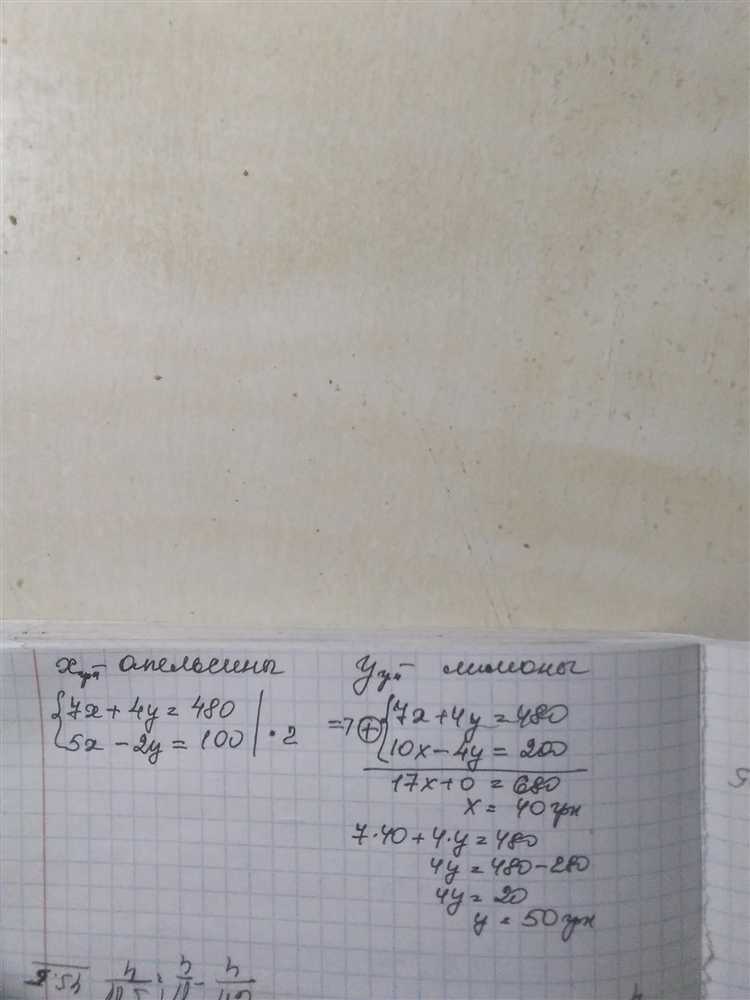 x грн - апельсины
y грн - лимоны
{7x + 4y = 480
{5x - 2y = 100 | · 2
=> ⊕ {7x + 4y = 480
{10x - 4y = 200
17x + 0 = 680
x = 40 грн
7 · 40 + 4 · y = 480
4y = 480 - 280
4y = 20
y = 50 грн